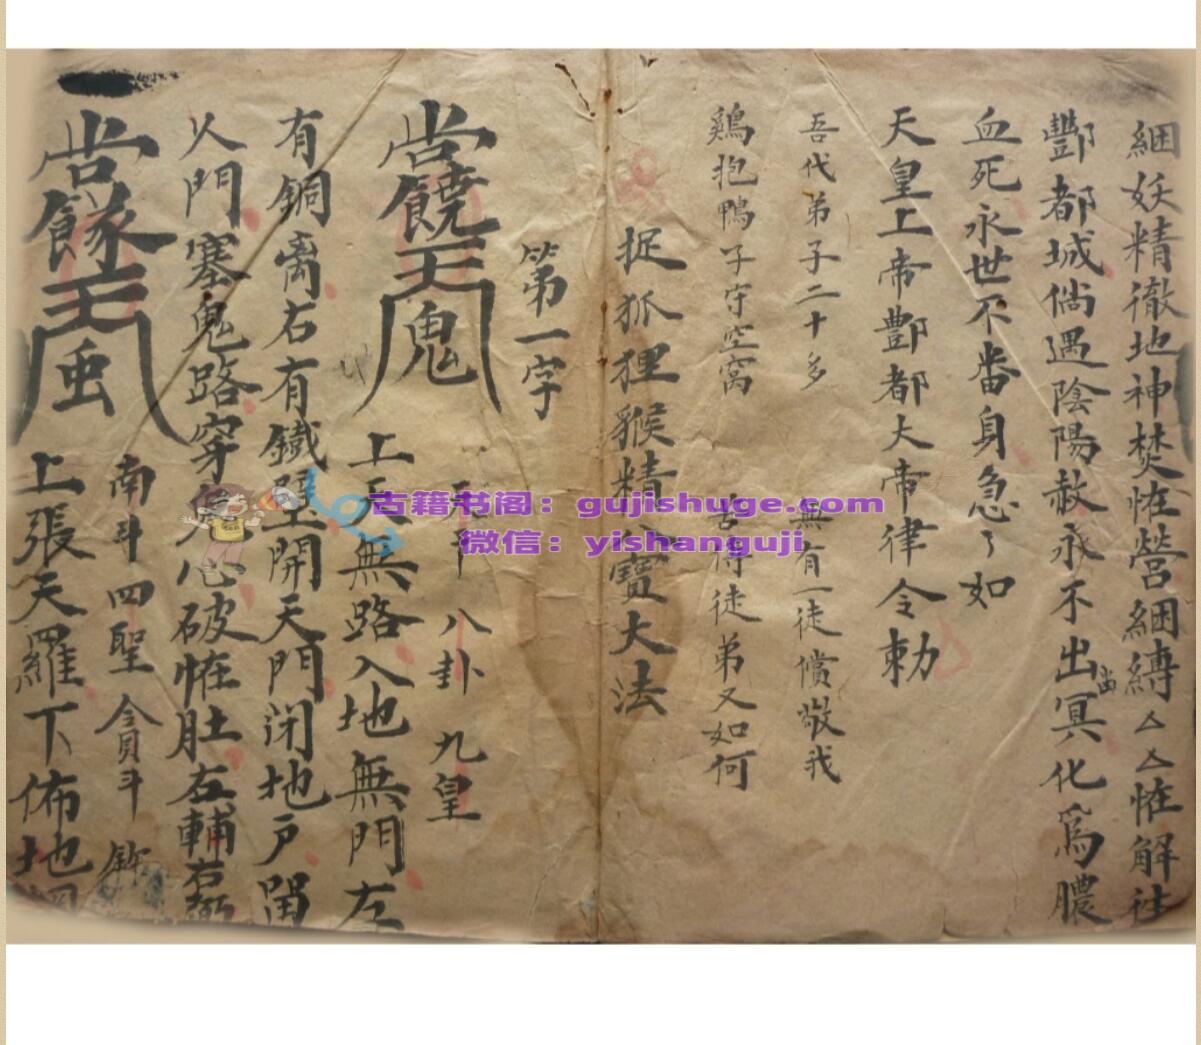 綑妖精徹地神焚恠營綑縛厶厶恠解社
酆都城倘遇陰陽赦永不出冥化爲膿
血死永世不番身急了如
天皇上帝酆都大帝律令勅
吾代弟子二十多 無有一徒償敬我
鷄抱鴨子守空窩 得徒弟又如何
捉狐狸猴精 寶大法
第一字
八卦 九皇
鬼 上天無路入地無門左
有銅 右有鐵壁開天門闭地户
人門塞鬼路穿 心破恠肚左輔右弼
南斗四聖貪斗
上張天羅下佈地網
古籍书阁：gujishuge.com
微信：yishanguji